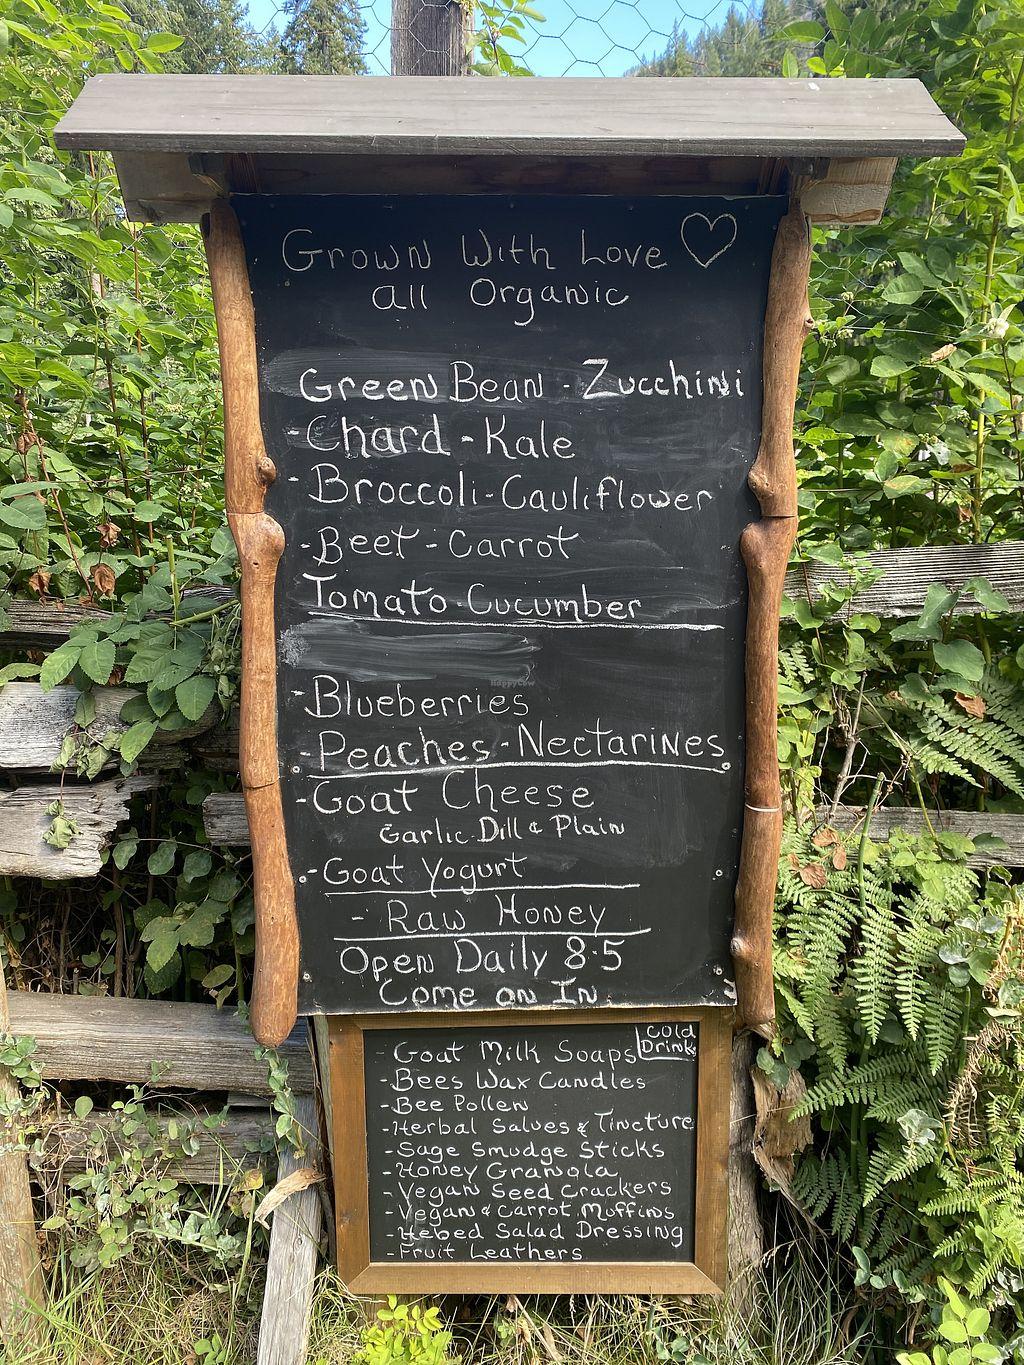 Grown With Love ♡
all Organic
Green Bean - Zucchini
-Chard - Kale
-Broccoli - Cauliflower
-Beet - Carrot
Tomato - Cucumber
HappyCow
-Blueberries
-Peaches - Nectarines
-Goat Cheese
Garlic Dill & Plain
-Goat Yogurt
- Raw Honey
Open Daily 8-5
Come on In
Cold
Drinks
- Goat Milk Soaps
-Bees Wax Candles
-Bee Pollen
-Herbal Salves & Tincture
-Sage Smudge Sticks
-Honey Granola
-Vegan Seed Crackers
-Vegan & Carrot Muffins
-Hebed Salad Dressing
-Fruit Leathers